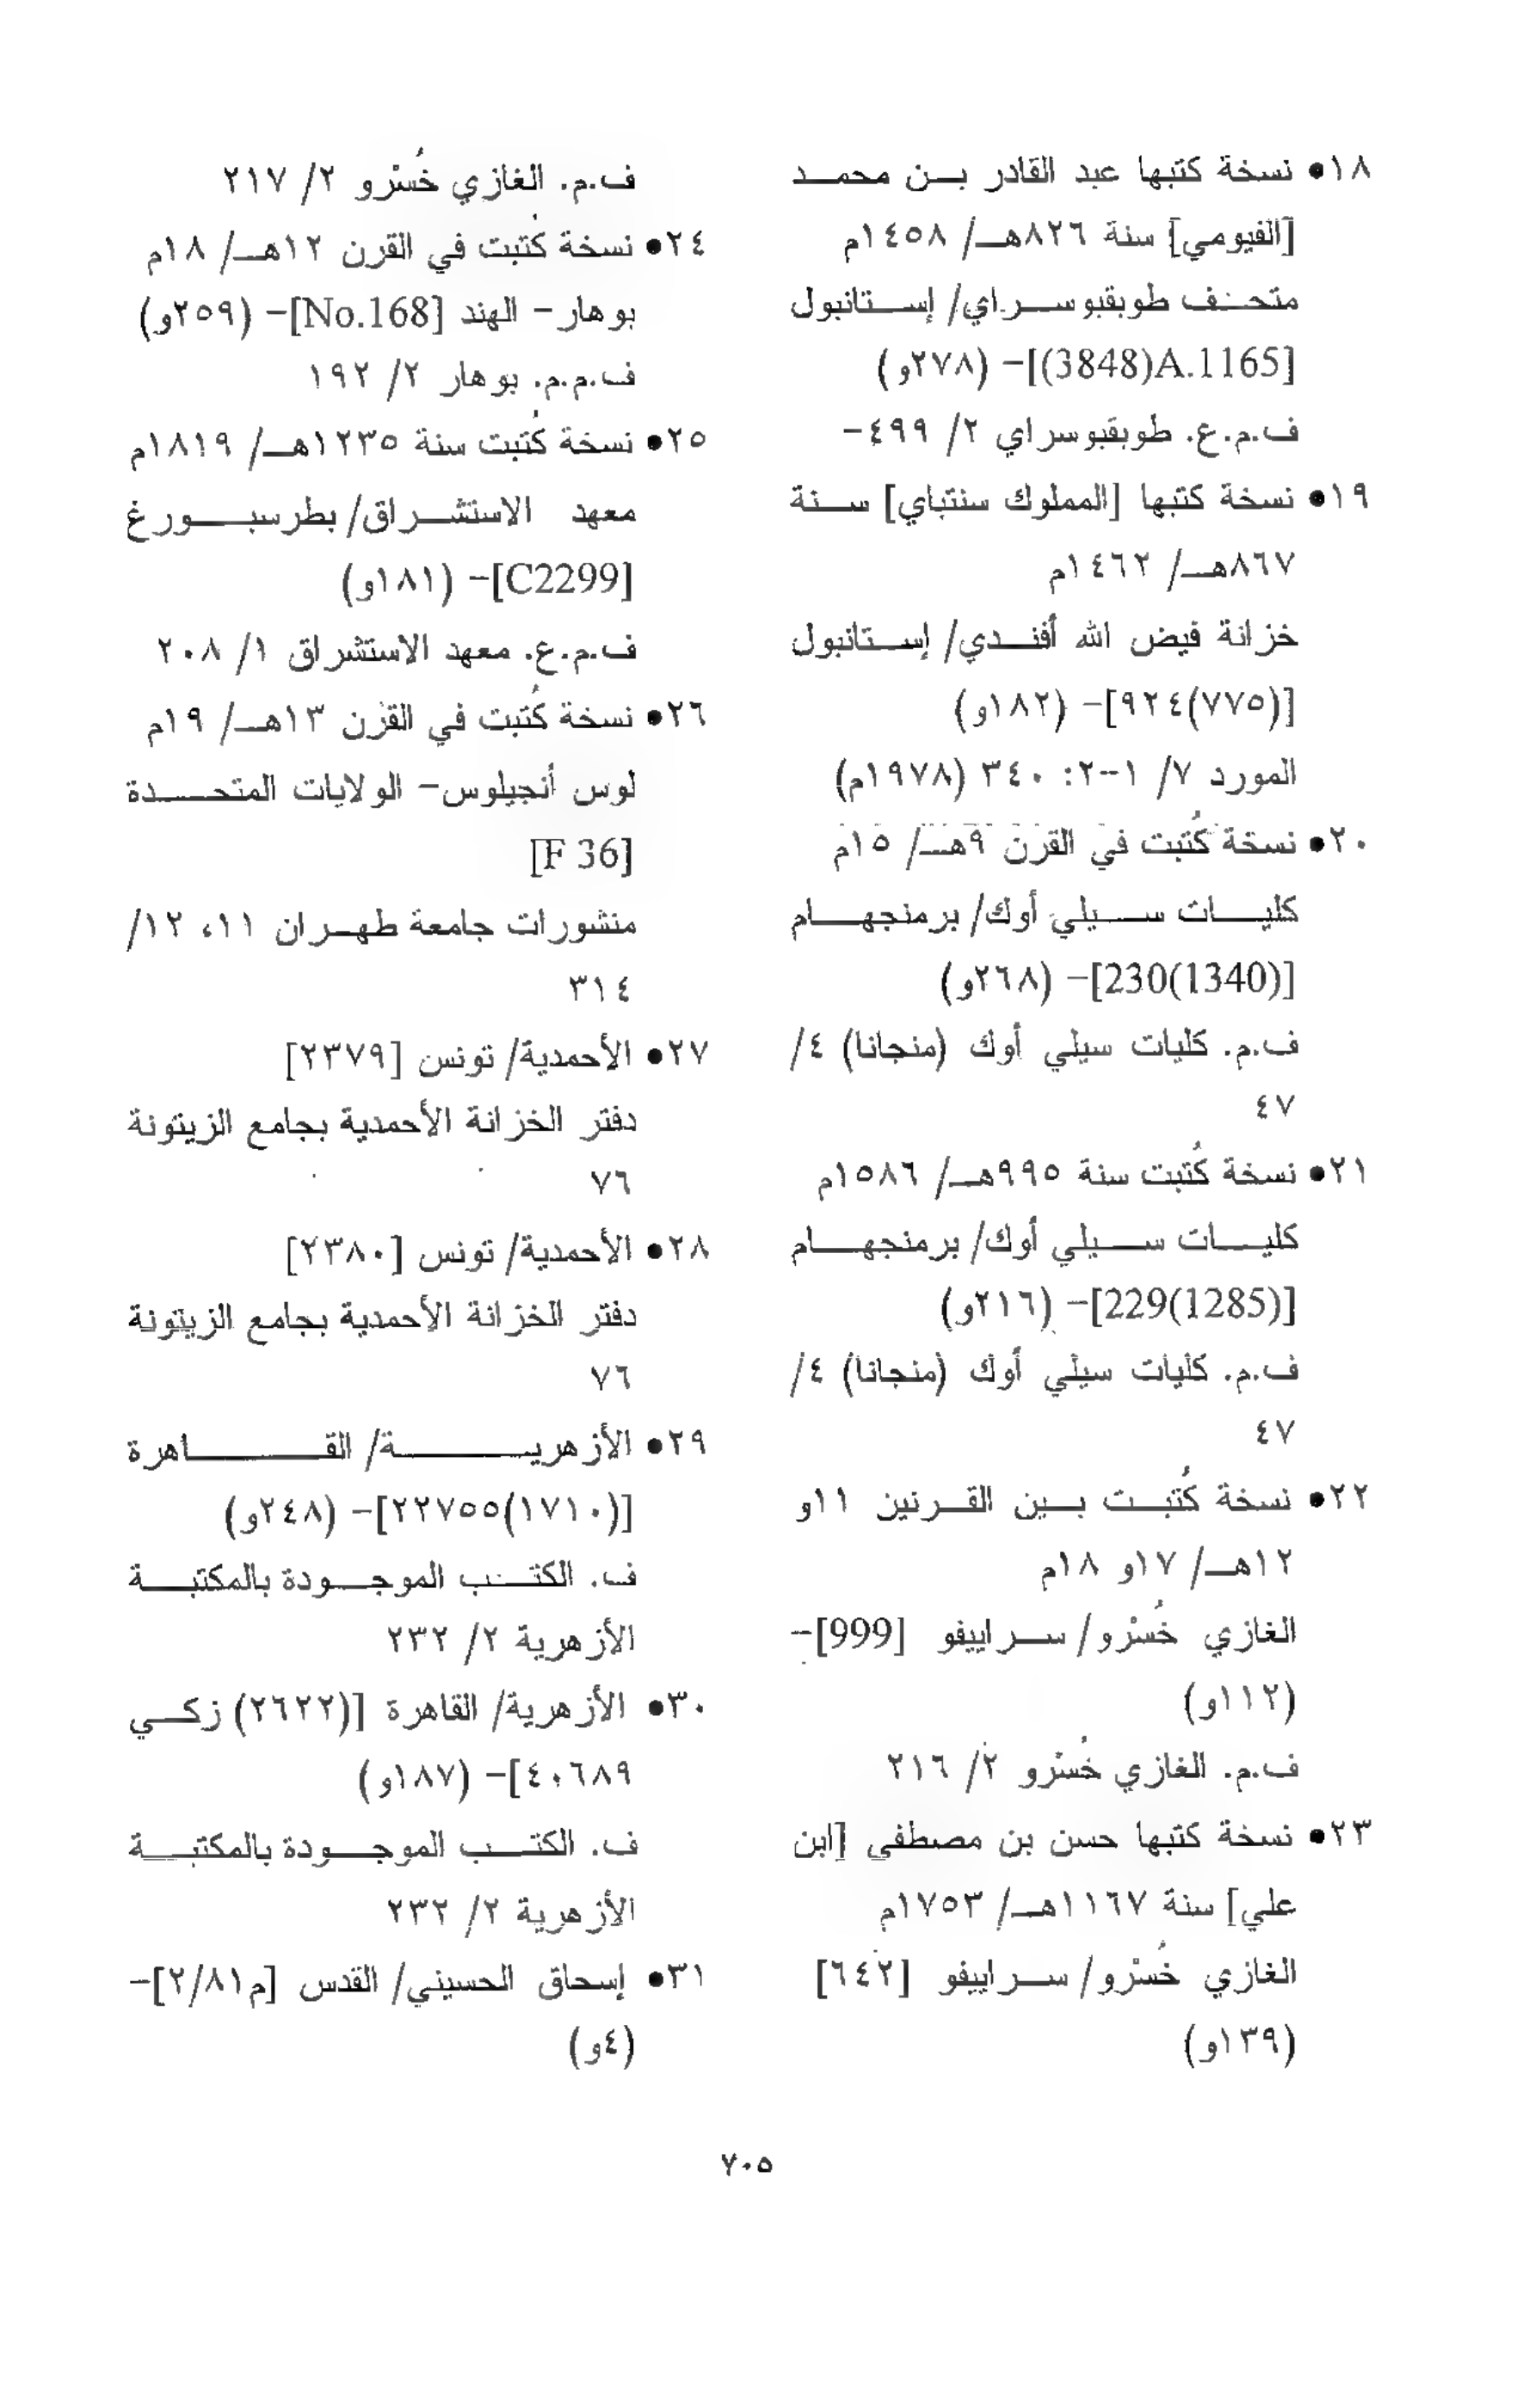 ١٨• نسخة كتبها عبد القادر بن محمد
[الفيومي] سنة ٨٢٦هـ/ ١٤٥٨م
متحف طوبقبوسراي/ إستانبول
[(3848)A.1165]- (٢٧٨و)
ف.م.ع. طوبقبوسراي ٢/ ٤٩٩-
١٩• نسخة كتبها [المملوك سنتباي] سنة
٨٦٧هـ/ ١٤٦٢م
خزانة فيض الله أفندي/ إستانبول
[(٧٧٥)٩٢٤]- (١٨٢و)
المورد ٧/ ١-٢: ٣٤٠ (١٩٧٨م)
٢٠• نسخة كُتبت في القرن ٩هـ/ ١٥م
كليات سيلي أوك/ برمنجهام
[230(1340)]- (٢٦٨و)
ف.م. كليات سيلي أوك (منجانا) ٤/
٤٧
٢١• نسخة كُتبت سنة ٩٩٥هـ/ ١٥٨٦م
كليات سيلي أوك/ برمنجهام
[229(1285)]- (٢١٦و)
ف.م. كليات سيلي أوك (منجانا) ٤/
٤٧
٢٢• نسخة كُتبت بين القرنين ١١و
١٢هـ/ ١٧و ١٨م
الغازي خُسْرو/ سراييفو [999]-
(١١٢و)
ف.م. الغازي خُسْرو ٢/ ٢١٦
٢٣• نسخة كتبها حسن بن مصطفى [ابن
علي] سنة ١١٦٧هـ/ ١٧٥٣م
الغازي خُسْرو/ سراييفو [٦٤٢]
(١٣٩و)
ف.م. الغازي خُسْرو ٢/ ٢١٧
٢٤• نسخة كُتبت في القرن ١٢هـ/ ١٨م
بوهار- الهند [No.168]- (٢٥٩و)
ف.م.م. بوهار ٢/ ١٩٢
٢٥• نسخة كُتبت سنة ١٢٣٥هـ/ ١٨١٩م
معهد الاستشراق/ بطرسبورغ
[C2299]- (١٨١و)
ف.م.ع. معهد الاستشراق ١/ ٢٠٨
٢٦• نسخة كُتبت في القرن ١٣هـ/ ١٩م
لوس أنجيلوس- الولايات المتحدة
[F 36]
منشورات جامعة طهران ١١، ١٢/
٣١٤
٢٧• الأحمدية/ تونس [٢٣٧٩]
دفتر الخزانة الأحمدية بجامع الزيتونة
٧٦
٢٨• الأحمدية/ تونس [٢٣٨٠]
دفتر الخزانة الأحمدية بجامع الزيتونة
٧٦
٢٩• الأزهرية/ القاهرة
[(١٧١٠)٢٢٧٥٥]- (٢٤٨و)
ف. الكتب الموجودة بالمكتبة
الأزهرية ٢/ ٢٣٢
٣٠• الأزهرية/ القاهرة [(٢٦٢٢) زكي
٤٠٦٨٩]- (١٨٧و)
ف. الكتب الموجودة بالمكتبة
الأزهرية ٢/ ٢٣٢
٣١• إسحاق الحسيني/ القدس [م٢/٨١]-
(٤و)
٧٠٥